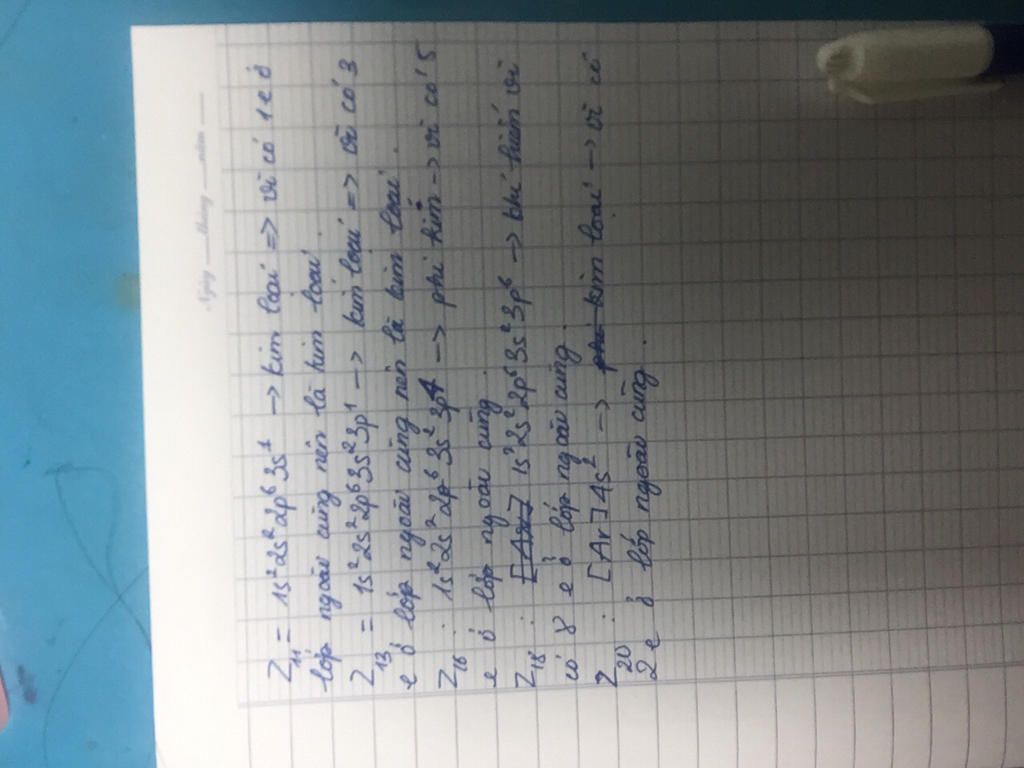 Ngày ___ tháng ___ năm ___
Z₁₁ = 1s²2s²2p⁶3s¹ -> kim loại => vì có 1 e ở
lớp ngoài cùng nên là kim loại.
Z₁₃ = 1s²2s²2p⁶3s²3p¹ -> kim loại => vì có 3
e ở lớp ngoài cùng nên là kim loại.
Z₁₆ : 1s²2s²2p⁶3s²3p⁴ -> phi kim -> vì có 5
e ở lớp ngoài cùng.
Z₁₈ : [Ar] 1s²2s²2p⁶3s²3p⁶ -> khí hiếm vì
có 8 e ở lớp ngoài cùng.
Z₂₀ : [Ar]4s² -> phi kim loại -> vì có
2 e ở lớp ngoài cùng.